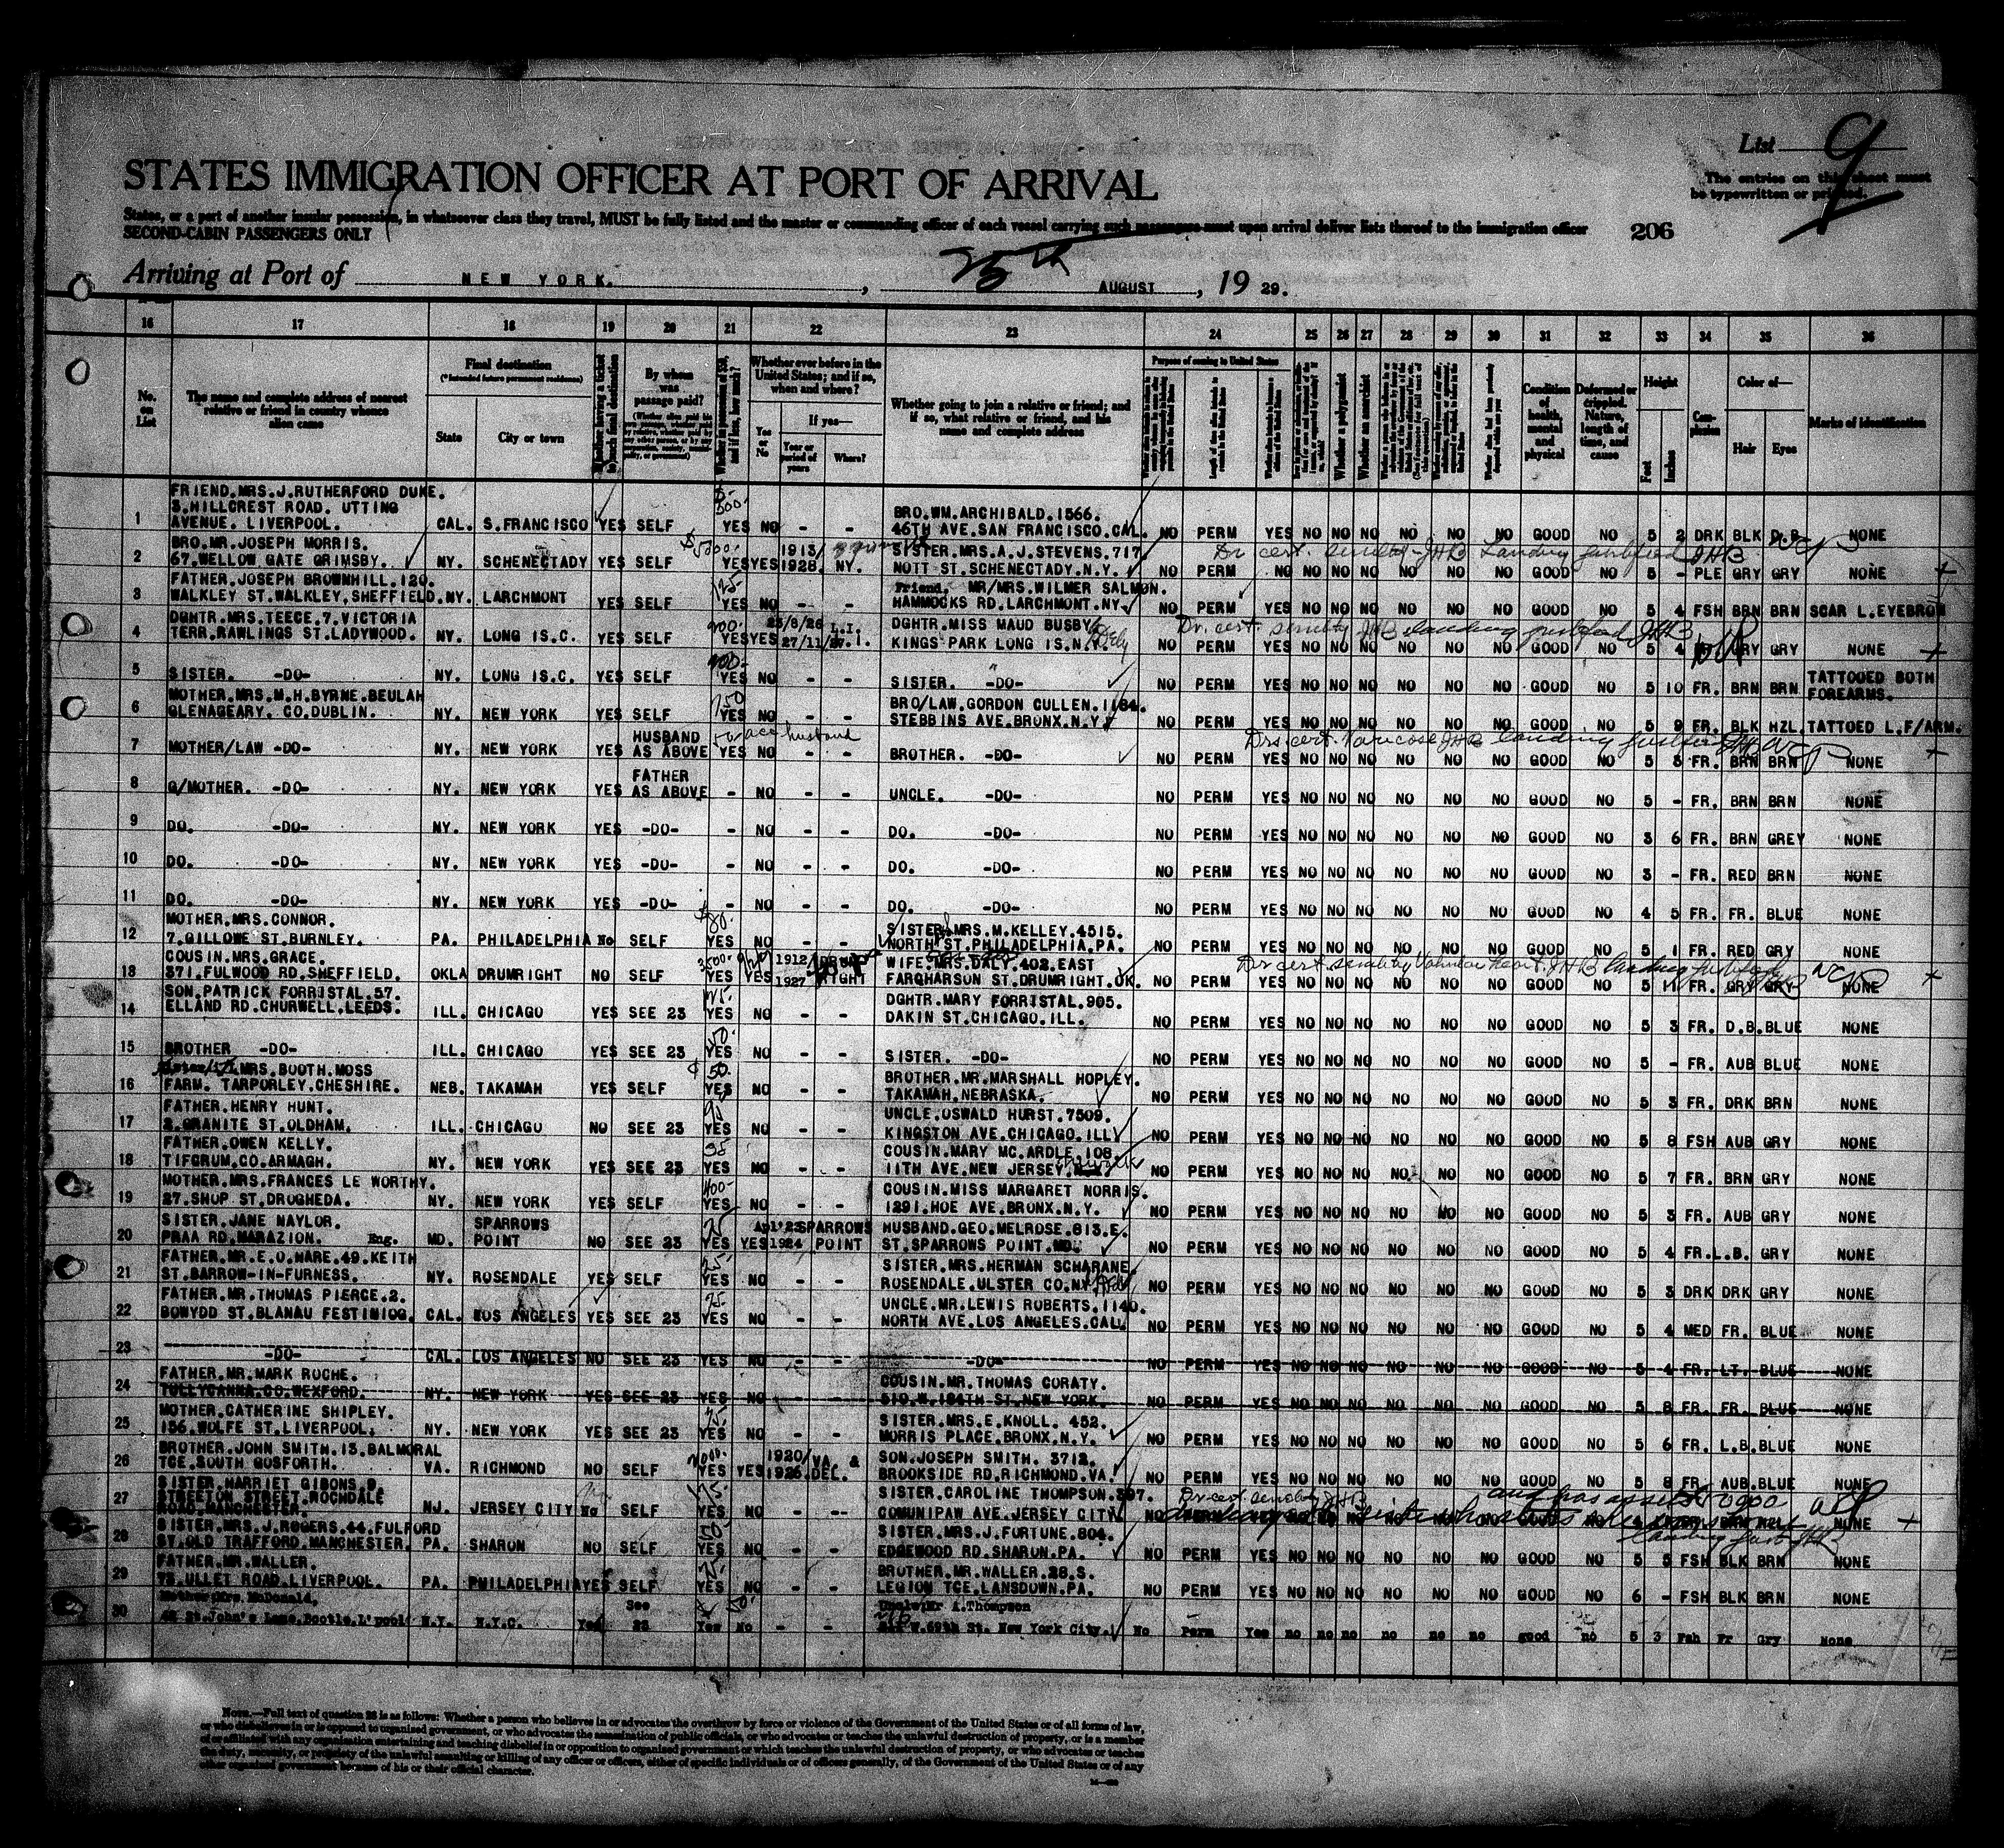 List 9
STATES IMMIGRATION OFFICER AT PORT OF ARRIVAL
The entries on this sheet must
be typewritten or printed.
States, or a part of another insular possession, in whatsoever class they travel, MUST be fully listed and the master or commanding officer of each vessel carrying such passengers must upon arrival deliver lists thereof to the immigration officer
SECOND-CABIN PASSENGERS ONLY
206
Arriving at Port of NEW YORK. , 25th AUGUST , 19 29.
16 17 18 19 20 21 22 23 24 25 26 27 28 29 30 31 32 33 34 35 36
No. on List
The name and complete address of nearest relative or friend in country whence alien came
Final destination
(*Intended future permanent residence)
State City or town
By whom was passage paid?
Whether ever before in the United States; and if so, when and where?
Yes or No
If yes—
Year or period of years Where?
Whether going to join a relative or friend; and if so, what relative or friend, and his name and complete address
Purpose of coming to United States
Whether a polygamist
Whether an anarchist
Condition of health, mental and physical
Deformed or crippled. Nature, length of time, and cause
Height
Feet Inches
Complexion
Color of—
Hair Eyes
Marks of identification
FRIEND.MRS.J.RUTHERFORD DUKE.
3.HILLCREST ROAD. UTTING BRO.WM.ARCHIBALD.1566.
1 AVENUE. LIVERPOOL. CAL. S.FRANCISCO YES SELF YES NO - - 46TH AVE.SAN FRANCISCO.CAL. NO PERM YES NO NO NO NO NO NO GOOD NO 5 2 DRK BLK D.B. NONE
BRO.MR.JOSEPH MORRIS. $5000. 1913/ SISTER.MRS.A.J.STEVENS.717. Dr cert. senility JHB Landing justified JHB
2 67.WELLOW GATE GRIMSBY. NY. SCHENECTADY YES SELF YES YES 1928. NY. NOTT ST.SCHENECTADY.N.Y. NO PERM NO NO NO NO NO NO NO GOOD NO 5 - PLE GRY GRY NONE
FATHER.JOSEPH BROWNHILL.120. 125 Friend. MR/MRS.WILMER SALMON.
3 WALKLEY ST.WALKLEY.SHEFFIELD. NY. LARCHMONT YES SELF YES NO - - HAMMOCKS RD.LARCHMONT.NY NO PERM YES NO NO NO NO NO NO GOOD NO 5 4 FSH BRN BRN SCAR L.EYEBROW
DGHTR.MRS.TEECE.7.VICTORIA 200. 23/8/26 L.I. DGHTR.MISS MAUD BUSBY Dr. cert. senility JHB landing justified JHB
4 TERR.RAWLINGS ST.LADYWOOD. NY. LONG IS.C. YES SELF YES YES 27/11/27. KINGS PARK LONG IS.N.Y. NO PERM NO NO NO NO NO NO NO GOOD NO 5 4 GRY GRY NONE
5 SISTER. -DO- NY. LONG IS.C. YES SELF YES NO - - SISTER. -DO- NO PERM YES NO NO NO NO NO NO GOOD NO 5 10 FR. BRN BRN TATTOOED BOTH FOREARMS.
MOTHER.MRS.M.H.BYRNE.BEULAH 750 BRO/LAW.GORDON CULLEN.1184.
6 GLENAGEARY. CO.DUBLIN. NY. NEW YORK YES SELF YES NO - - STEBBINS AVE.BRONX.N.Y. NO PERM YES NO NO NO NO NO NO GOOD NO 5 9 FR. BLK HZL. TATTOED L.F/ARM.
7 MOTHER/LAW -DO- NY. NEW YORK YES HUSBAND AS ABOVE YES NO - - BROTHER. -DO- NO PERM YES NO NO NO NO NO NO GOOD NO 5 5 FR. BRN BRN NONE
8 G/MOTHER. -DO- NY. NEW YORK YES FATHER AS ABOVE - NO - - UNCLE. -DO- NO PERM YES NO NO NO NO NO NO GOOD NO 5 - FR. BRN BRN NONE
9 DO. -DO- NY. NEW YORK YES -DO- - NO - - DO. -DO- NO PERM YES NO NO NO NO NO NO GOOD NO 3 6 FR. BRN GREY NONE
10 DO. -DO- NY. NEW YORK YES -DO- - NO - - DO. -DO- NO PERM YES NO NO NO NO NO NO GOOD NO 3 - FR. RED BRN NONE
11 DO. -DO- NY. NEW YORK YES -DO- - NO - - DO. -DO- NO PERM YES NO NO NO NO NO NO GOOD NO 4 5 FR. FR. BLUE NONE
MOTHER.MRS.CONNOR. $80. SISTER.MRS.M.KELLEY.4515.
12 7.GILLOWE ST.BURNLEY. PA. PHILADELPHIA No SELF YES NO - - NORTH ST.PHILADELPHIA.PA. NO PERM YES NO NO NO NO NO NO GOOD NO 5 1 FR. RED GRY NONE
COUSIN.MRS.GRACE. 3500. 1912/ DRUM WIFE.MRS.DALY.402.EAST
13 371.FULWOOD RD.SHEFFIELD. OKLA DRUMRIGHT NO SELF YES YES 1927 RIGHT FARQHARSON ST.DRUMRIGHT.OK. NO PERM YES NO NO NO NO NO NO GOOD NO 5 11 FR. GRY GRY NONE
SON.PATRICK FORRISTAL.57. DGHTR.MARY FORRISTAL.905.
14 ELLAND RD.CHURWELL.LEEDS. ILL. CHICAGO YES SEE 23 YES NO - - DAKIN ST.CHICAGO.ILL. NO PERM YES NO NO NO NO NO NO GOOD NO 5 3 FR. D.B. BLUE NONE
15 BROTHER -DO- ILL. CHICAGO YES SEE 23 50. YES NO - - SISTER. -DO- NO PERM YES NO NO NO NO NO NO GOOD NO 5 - FR. AUB BLUE NONE
MRS.BOOTH.MOSS $50. BROTHER.MR.MARSHALL HOPLEY.
16 FARM. TARPORLEY.CHESHIRE. NEB. TAKAMAH YES SELF YES NO - - TAKAMAH.NEBRASKA. NO PERM YES NO NO NO NO NO NO GOOD NO 5 3 FR. DRK BRN NONE
FATHER.HENRY HUNT. UNCLE.OSWALD HURST.7509.
17 2.GRANITE ST.OLDHAM. ILL. CHICAGO NO SEE 23 YES NO - - KINGSTON AVE.CHICAGO.ILL NO PERM YES NO NO NO NO NO NO GOOD NO 5 8 FSH AUB GRY NONE
FATHER.OWEN KELLY. 35 COUSIN.MARY MC.ARDLE.108.
18 TIFCRUM.CO.ARMAGH. NY. NEW YORK YES SEE 23 YES NO - - 11TH AVE.NEW JERSEY. NO PERM YES NO NO NO NO NO NO GOOD NO 5 7 FR. BRN GRY NONE
MOTHER.MRS.FRANCES LE WORTHY. 400- COUSIN.MISS MARGARET NORRIS.
19 27.SHOP ST.DROGHEDA. NY. NEW YORK YES SELF YES NO - - 1291.HOE AVE.BRONX.N.Y. NO PERM YES NO NO NO NO NO NO GOOD NO 5 3 FR. AUB GRY NONE
SISTER.JANE NAYLOR. SPARROWS 25 Apl'23 SPARROWS HUSBAND.GEO.MELROSE.813.E.
20 PRAA RD.MARAZION. Eng. MD. POINT NO SEE 23 YES YES 1924 POINT ST.SPARROWS POINT.MD. NO PERM YES NO NO NO NO NO NO GOOD NO 5 4 FR. L.B. GRY NONE
FATHER.MR.E.O.HARE.49.KEITH 25. SISTER.MRS.HERMAN SCHARANE.
21 ST.BARROW-IN-FURNESS. NY. ROSENDALE YES SELF YES NO - - ROSENDALE.ULSTER CO.NY. NO PERM YES NO NO NO NO NO NO GOOD NO 5 3 DRK DRK GRY NONE
FATHER.MR.THOMAS PIERCE.2. UNCLE.MR.LEWIS ROBERTS.1140.
22 BOWYDD ST.BLANAU FESTINIOG. CAL. LOS ANGELES YES SEE 23 YES NO - - NORTH AVE.LOS ANGELES.CAL. NO PERM YES NO NO NO NO NO NO GOOD NO 5 4 MED FR. BLUE NONE
23 -DO- CAL. LOS ANGELES NO SEE 23 YES NO - - -DO- NO PERM YES NO NO NO NO NO NO GOOD NO 5 4 FR. LT. BLUE NONE
FATHER.MR.MARK ROCHE. COUSIN.MR.THOMAS CORATY.
24 TULLYCANNA.CO.WEXFORD. NY. NEW YORK YES SEE 23 YES NO - - 510.W.184TH ST.NEW YORK. NO PERM YES NO NO NO NO NO NO GOOD NO 5 8 FR. FR. BLUE NONE
MOTHER.CATHERINE SHIPLEY. SISTER.MRS.E.KNOLL. 452.
25 156.WOLFE ST.LIVERPOOL. NY. NEW YORK YES SEE 23 YES NO - - MORRIS PLACE.BRONX.N.Y. NO PERM YES NO NO NO NO NO NO GOOD NO 5 6 FR. L.B. BLUE NONE
BROTHER.JOHN SMITH.13.BALMORAL 1920/ VA. & SON.JOSEPH SMITH. 3712.
26 TCE.SOUTH GOSFORTH. VA. RICHMOND NO SELF YES YES 1926. DEL. BROOKSIDE RD.RICHMOND.VA. NO PERM YES NO NO NO NO NO NO GOOD NO 5 8 FR. AUB. BLUE NONE
SISTER.HARRIET GIBONS.9. SISTER.CAROLINE THOMPSON.397. Dr cert. senility JHB
27 STREETON STREET.ROCHDALE ROAD.MANCHESTER. NJ. JERSEY CITY No SELF YES NO - - COMUNIPAW AVE.JERSEY CITY NO NONE
SISTER.MRS.J.ROGERS.44.FULFORD 50 SISTER.MRS.J.FORTUNE.804.
28 ST.OLD TRAFFORD.MANCHESTER. PA. SHARON NO SELF YES NO - - EDGEWOOD RD.SHARON.PA. NO PERM YES NO NO NO NO NO NO GOOD NO 5 5 FSH BLK BRN NONE
FATHER.MR.WALLER. BROTHER.MR.WALLER.28.S.
29 73.ULLET ROAD.LIVERPOOL. PA. PHILADELPHIA YES SELF YES NO - - LEGION TCE.LANSDOWN.PA. NO PERM YES NO NO NO NO NO NO GOOD NO 6 - FSH BLK BRN NONE
Mother.Mrs. McDonald. See 50. Uncle.Mr A.Thompson
30 St.John's Lane.Bootle.L'pool N.Y. N.Y.C. Yes 23 Yes No - - W.69th St. New York City. No Perm Yes no no no no no no good no 5 3 Fsh Fr Gry None
NOTE.—Full text of question 28 is as follows: Whether a person who believes in or advocates the overthrow by force or violence of the Government of the United States or of all forms of law,
or who disbelieves in or is opposed to organized government, or who advocates the assassination of public officials, or who advocates or teaches the unlawful destruction of property, or is a member
of or affiliated with any organization entertaining and teaching disbelief in or opposition to organized government or which teaches the unlawful destruction of property, or who advocates or teaches
the duty, necessity, or propriety of the unlawful assaulting or killing of any officer or officers, either of specific individuals or of officers generally, of the Government of the United States or of any
other organized government because of his or their official character.